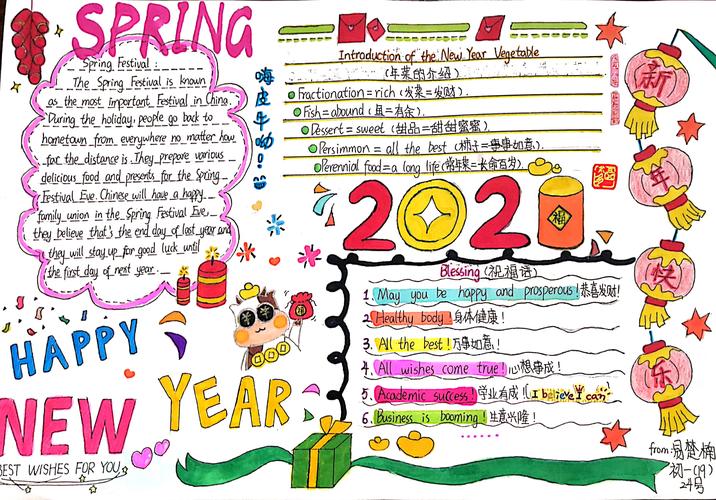 SPRING
Spring Festival:
The Spring Festival is known
as the most important Festival in China.
During the holiday, people go back to
hometown from everywhere no matter how
far the distance is. They prepare various
delicious food and presents for the Spring
Festival Eve. Chinese will have a happy
family union in the Spring Festival Eve,
they believe that's the end of last year and
they will stay up for good luck until
the first day of next year.
嗨皮牛呦!
Introduction of the New Year Vegetable
(年菜的介绍)
Fractionation=rich (发菜=发财).
Fish=abound (鱼=有余).
Dessert=sweet (甜品=甜甜蜜蜜)
Persimmon=all the best (柿汁=事事如意).
Perennial food=a long life (常年菜=长命百岁).
2021
福
新
年
快
乐
Blessing (祝福语)
1. May you be happy and prosperous! 恭喜发财!
2. Healthy body! 身体健康!
3. All the best! 万事如意!
4. All wishes come true! 心想事成!
5. Academic success! 学业有成! I believe I can
6. Business is booming! 生意兴隆!
HAPPY
NEW
YEAR
BEST WISHES FOR YOU
from: 易楚楠
初一(19)
24号